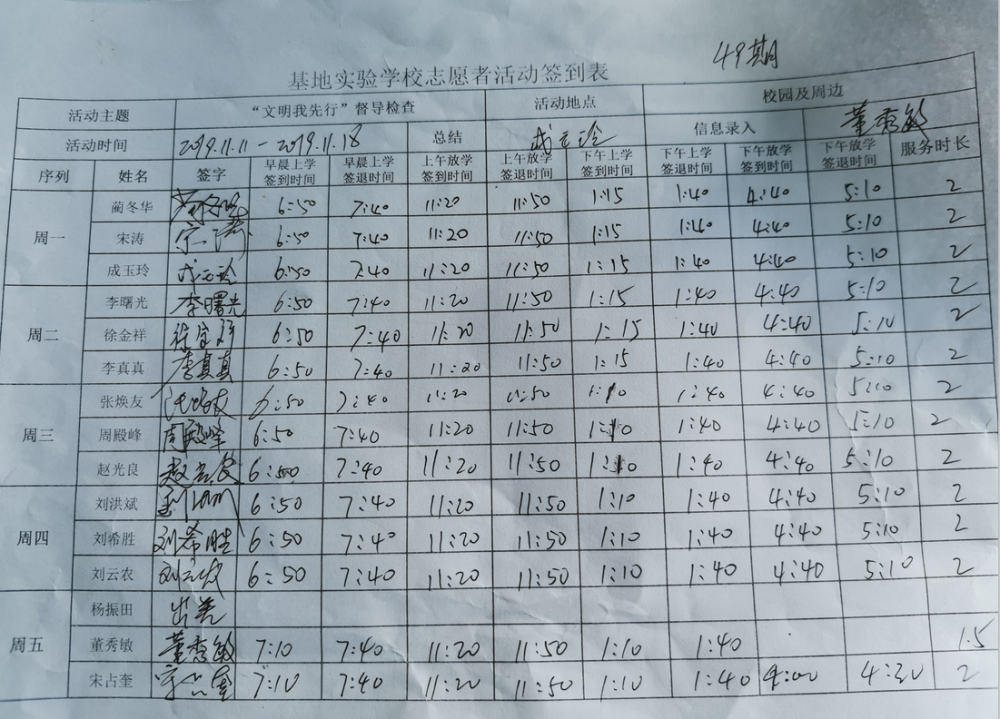 49期
基地实验学校志愿者活动签到表
活动主题 “文明我先行”督导检查 活动地点 校园及周边
活动时间 2019.11.11-2019.11.18 总结 成玉玲 信息录入 董秀敏
序列 姓名 签字 早晨上学签到时间 早晨上学签退时间 上午放学签到时间 上午放学签退时间 下午上学签到时间 下午上学签退时间 下午放学签到时间 下午放学签退时间 服务时长
周一 蔺冬华 6:50 7:40 11:20 11:50 1:15 1:40 4:40 5:10 2
宋涛 宋涛 6:50 7:40 11:20 11:50 1:15 1:40 4:40 5:10 2
成玉玲 成玉玲 6:50 7:40 11:20 11:50 1:15 1:40 4:40 5:10 2
周二 李曙光 李曙光 6:50 7:40 11:20 11:50 1:15 1:40 4:40 5:10 2
徐金祥 徐金祥 6:50 7:40 11:20 11:50 1:15 1:40 4:40 5:10 2
李真真 李真真 6:50 7:40 11:20 11:50 1:15 1:40 4:40 5:10 2
周三 张焕友 6:50 7:40 11:20 11:50 1:10 1:40 4:40 5:10 2
周殿峰 周殿峰 6:50 7:40 11:20 11:50 1:10 1:40 4:40 5:10 2
赵光良 赵光良 6:50 7:40 11:20 11:50 1:10 1:40 4:40 5:10 2
周四 刘洪斌 6:50 7:40 11:20 11:50 1:10 1:40 4:40 5:10 2
刘希胜 刘希胜 6:50 7:40 11:20 11:50 1:10 1:40 4:40 5:10 2
刘云农 刘云农 6:50 7:40 11:20 11:50 1:10 1:40 4:40 5:10 2
周五 杨振田 出差
董秀敏 董秀敏 7:10 7:40 11:20 11:50 1:10 1:40 1.5
宋占奎 宋占奎 7:10 7:40 11:20 11:50 1:10 1:40 4:00 4:30 2